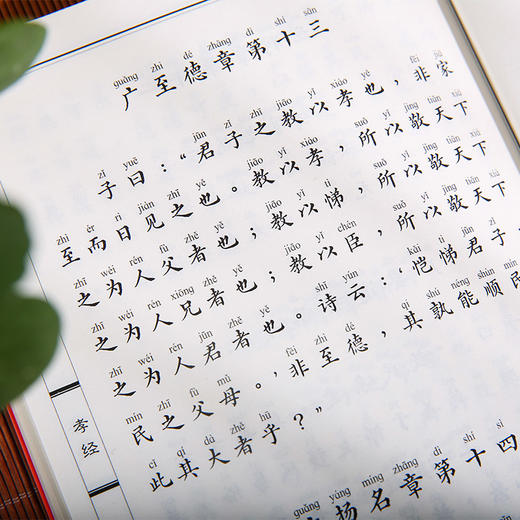 guǎng zhì dé zhāng dì shí sān
广至德章第十三
zǐ yuē jūn zǐ zhī jiào yǐ xiào yě fēi jiā
子曰：“君子之教以孝也，非家
zhì ér rì jiàn zhī yě jiào yǐ xiào suǒ yǐ jìng tiān xià
至而日见之也。教以孝，所以敬天下
zhī wéi rén fù zhě yě jiào yǐ tì suǒ yǐ jìng tiān xià
之为人父者也；教以悌，所以敬天下
zhī wéi rén xiōng zhě yě jiào yǐ chén suǒ yǐ jìng tiān xià
之为人兄者也；教以臣，所以敬天下
zhī wéi rén jūn zhě yě shī yún kǎi tì jūn zǐ
之为人君者也。诗云：‘恺悌君子，
mín zhī fù mǔ fēi zhì dé qí shú néng shùn mín
民之父母。’非至德，其孰能顺民
cǐ qí dà zhě hū
此其大者乎？”
guǎng yáng míng zhāng dì shí sì
扬名章第十四
孝经